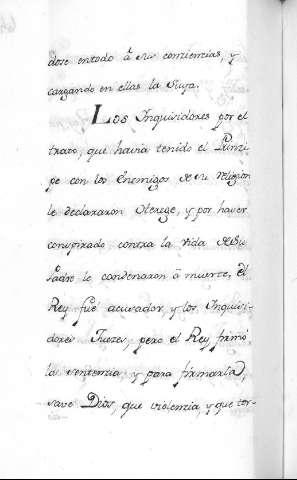 dose entodo á sus conciencias, y
cargando en ellas la Suya.
Los Inquisidores por el
trato, que havia tenido el Princi
pe con los Enemigos de su religion
le declararon Herege, y por haver
conspirado contra la vida de Su
Padre le condenaron á muerte, el
Rey fué acusador, y los Inquisi-
dores Juezes, pero el Rey firmó
la sentencia, y para firmarla,
save Dios, que violencia, y que tor-